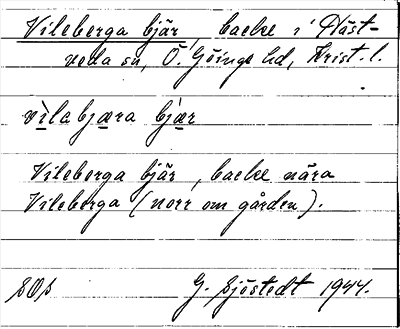 Vileberga bjär, backe i Häst-
veda sn, Ö. Göinge hd, Krist. l.
vìlabjæra bjær
Vileberga bjär, backe nära
Vileberga (norr om gården).
SOs G. Sjöstedt 1944.